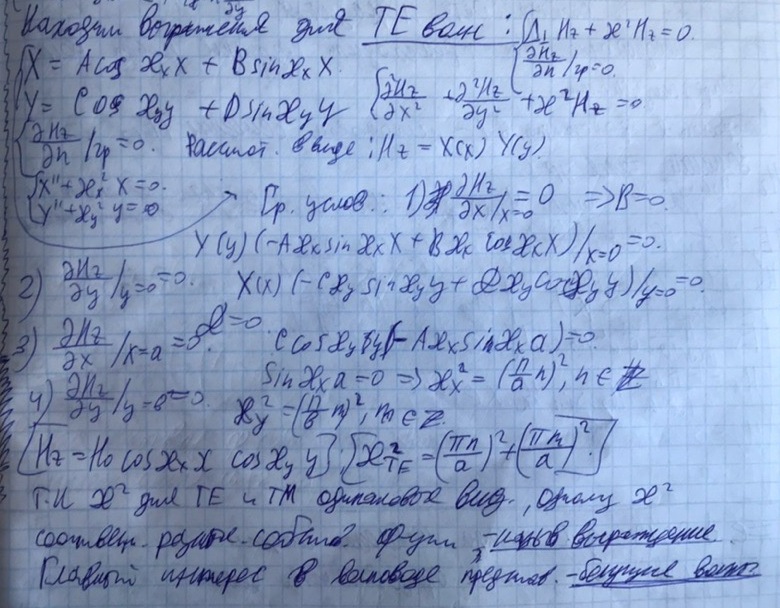 Находим выражения для TE волн: { Δ⊥ Hz + ϰ²Hz = 0.
∂Hz/∂n /гр = 0.
{ X = A cos ϰx X + B sin ϰx X.
Y = C cos ϰy y + D sin ϰy y { ∂Hz/∂x² + ∂²Hz/∂y² + ϰ²Hz = 0
∂Hz/∂n /гр = 0. Рассмот. в виде: Hz = X(x) Y(y).
{ X'' + ϰx² X = 0.
Y'' + ϰy² y = 0 Гр. услов.: 1) ∂Hz/∂x /x=0 = 0 => B = 0.
Y(y) (-Aϰx sin ϰx X + Bϰx cos ϰx X) /x=0 = 0.
2) ∂Hz/∂y /y=0 = 0. X(x) (-Cϰy sin ϰy y + Dϰy cos ϰy y) /y=0 = 0.
D = 0.
3) ∂Hz/∂x /x=a = 0. C cos ϰy y (-Aϰx sin ϰx a) = 0.
sin ϰx a = 0 => ϰx² = (π/a n)², n ∈ Z
4) ∂Hz/∂y /y=b = 0. ϰy² = (π/b m)², m ∈ Z.
[Hz = H₀ cos ϰx x cos ϰy y] [ϰ²TE = (πn/a)² + (πm/a)².]
Т.к ϰ² для TE и TM одинаковы вид., одному ϰ²
соответ. разные собств. функ, - назыв вырождение.
Главный интерес в волноводе представ. - бегущие волны.